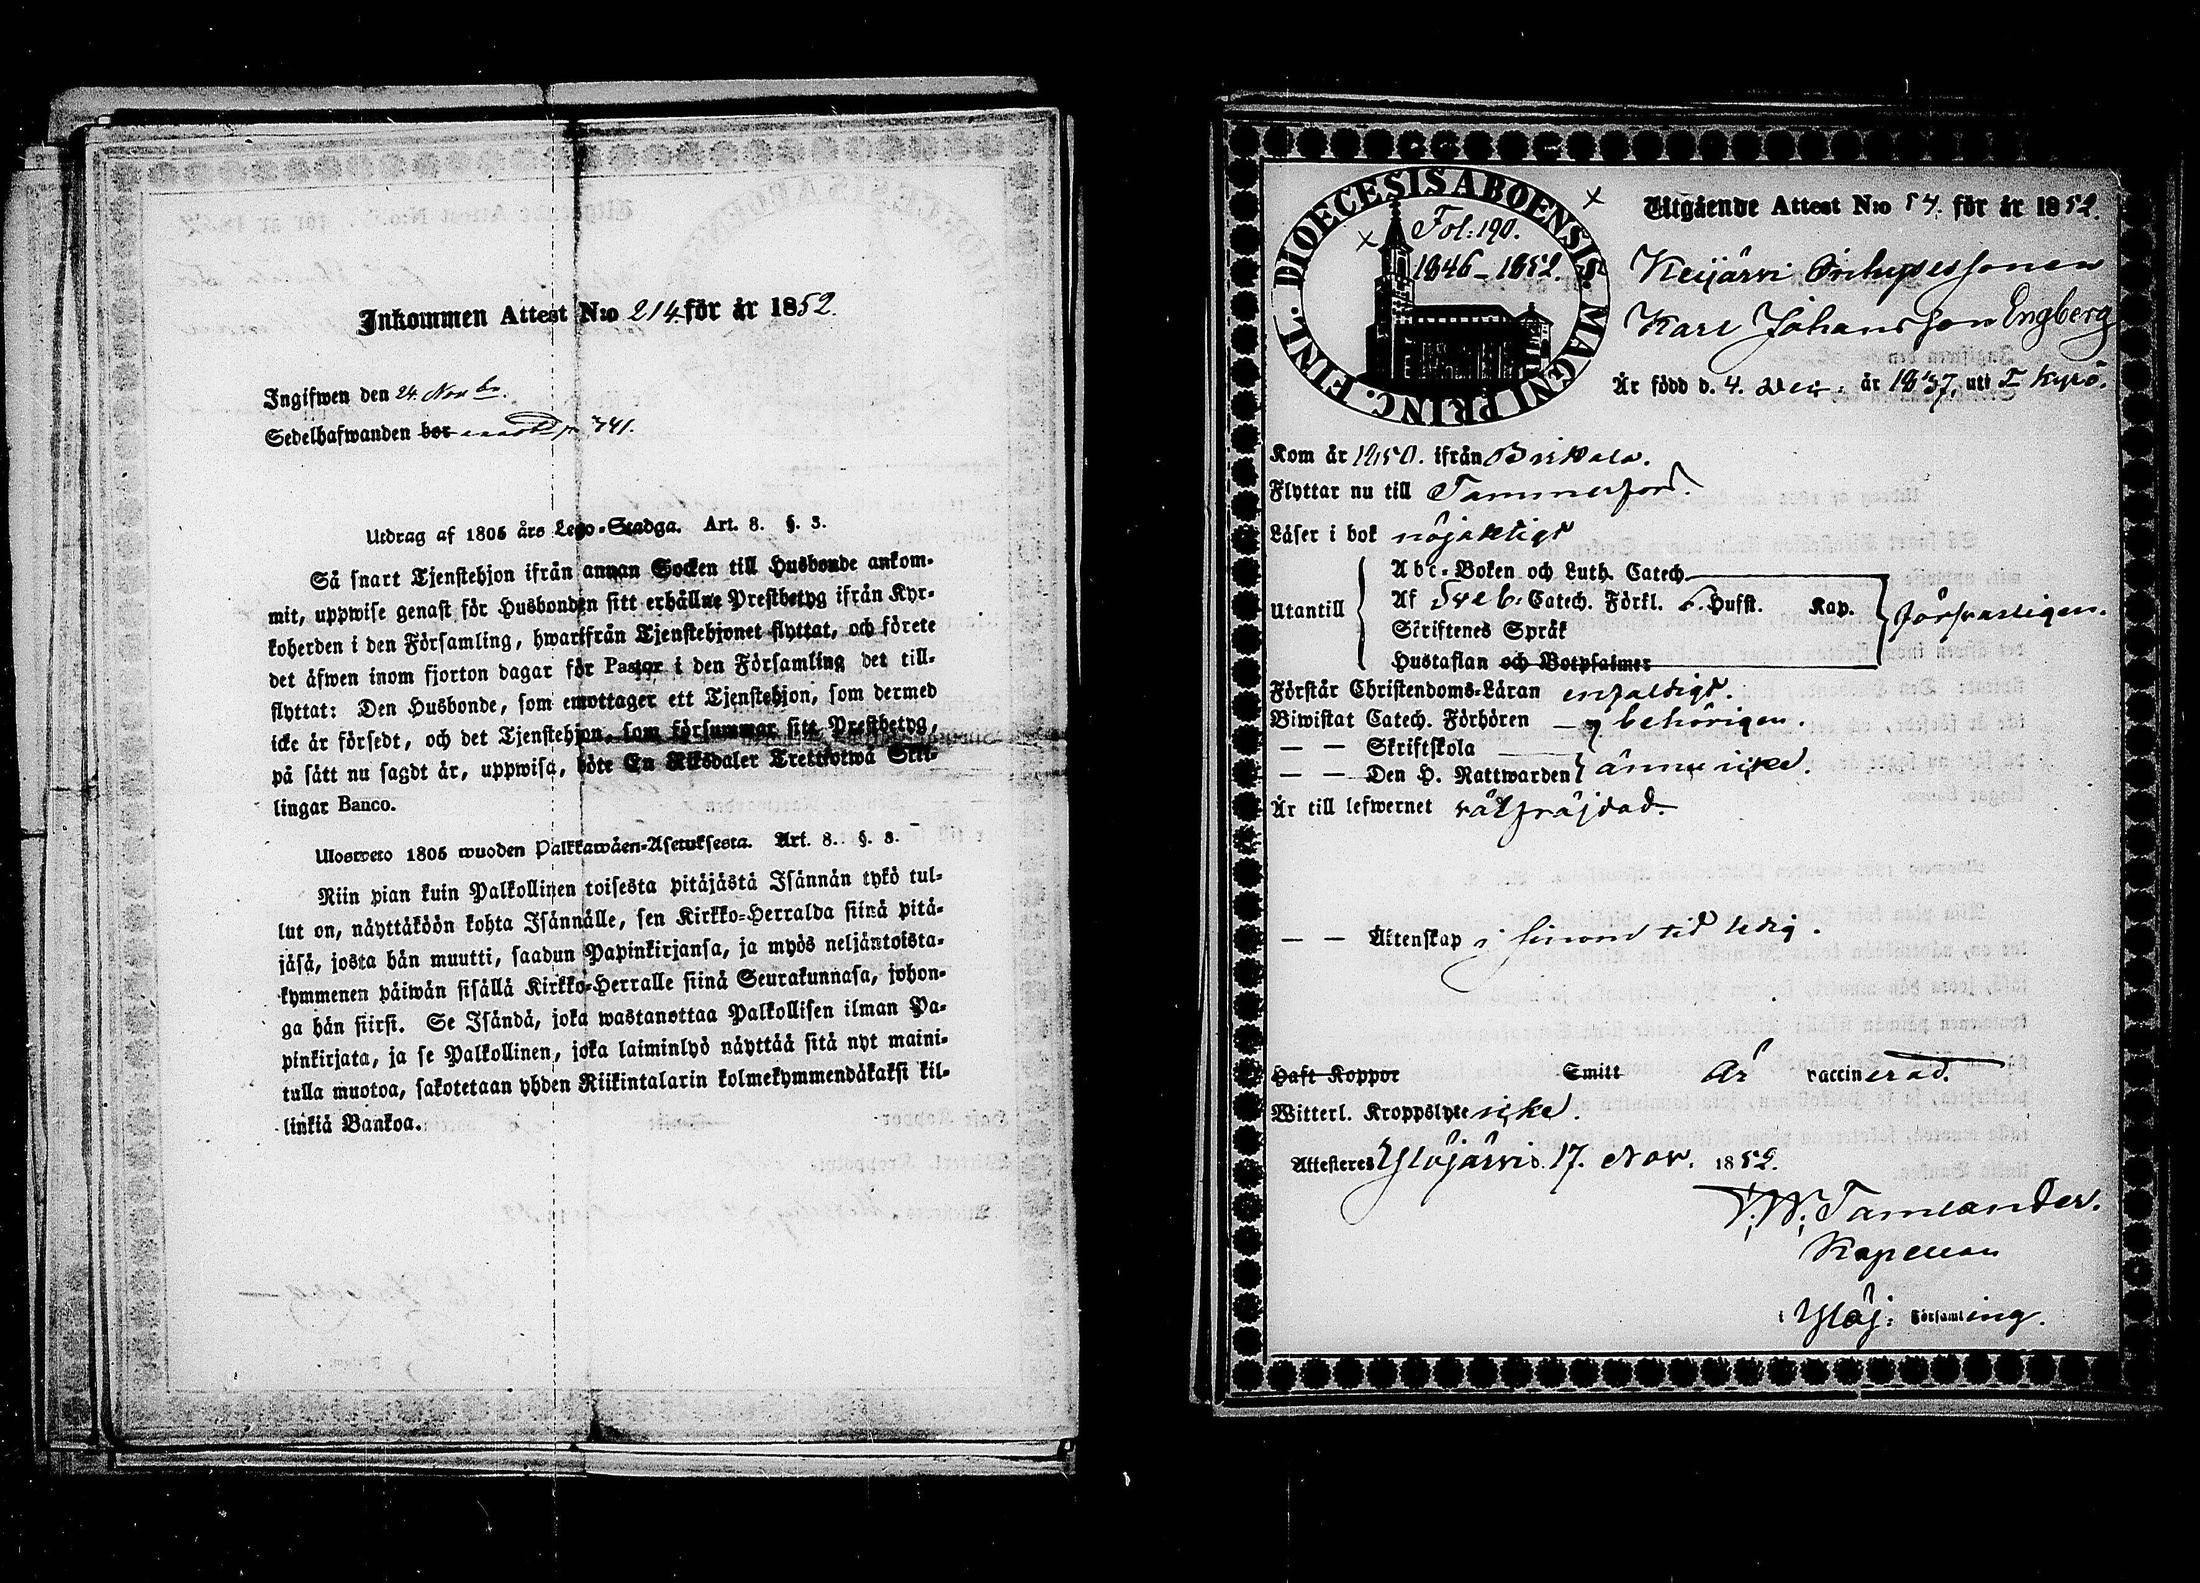 Inkommen Attest N:o 214. för år 1852.
Ingifwen den 24. Novbr.
Sedelhafwanden bor 441.
Utdrag af 1805 års Lego-Stadga. Art. 8. §. 3.
Så snart Tjenstehjon ifrån annan Socken till Husbonde ankom-
mit, uppwise genast för Husbonden sitt erhållne Prestbetyg ifrån Kyr-
koherden i den Församling, hwarifrån Tjenstehjonet flyttat, och förete
det äfwen inom fjorton dagar för Pastor i den Församling det till-
flyttat: Den Husbonde, som emottager ett Tjenstehjon, som dermed
icke är försedt, och det Tjenstehjon, som försummar sitt Prestbetyg,
på sätt nu sagdt är, uppwisa, böte En Riksdaler Trettiotwå Skil-
lingar Banco.
Ulosweto 1805 wuoden Palkkawäen-Asetuksesta. Art. 8. §. 3.
Niin pian kuin Palkollinen toisesta pitäjästä Isännän tykö tul-
lut on, näyttäköön kohta Isännälle, sen Kirkko-Herralda siinä pitä-
jäsä, josta hän muutti, saadun Papinkirjansa, ja myös neljäntoista-
kymmenen päiwän sisällä Kirkko-Herralle siinä Seurakunnasa, johon-
ga hän siirsi. Se Isändä, joka wastanottaa Palkollisen ilman Pa-
pinkirjata, ja se Palkollinen, joka laiminlyö näyttää sitä nyt maini-
tulla muotoa, sakotetaan yhden Riikintalarin kolmekymmendäkaksi kil-
linkiä Bankoa.
DIOECESIS ABOENSIS. MAGNI PRINC. FINL.
Fol: 190.
1846-1852.
Utgående Attest N:o 54. för år 1852.
Keijärvi
Karl Johansson Engberg
Är född d. 4. Dec. år 1837, uti T Kyrö.
Kom år 1850. ifrån Birkala.
Flyttar nu till Tammerfors.
Läser i bok nöjaktigt
Utantill
Abc-Boken och Luth. Catech.
Af Sveb. Catech. Förkl. 5 Hufst. Kap.
Skriftenes Språk
Hustaflan och Botpsalmer
försvarligen.
Förstår Christendoms-Läran enfaldigt.
Biwistat Catech. Förhören behörigen.
— — Skriftskola
— — Den H. Nattwarden ännu icke.
Är till lefwernet rättfräjdad.
— — Äktenskap i sinom tid ledig.
Haft Koppor Smitt Är vaccinerad.
Witterl. Kroppslyte icke.
Attesteres Ylöjärvi d. 17. Nov. 1852.
Tamlander.
Kapellan
i Ylöj: Församling.